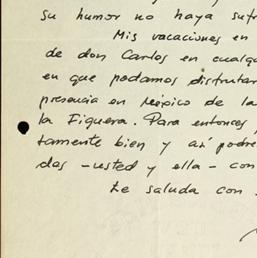 su humor no haya sufr
Mis vacaciones en
de don Carlos en cualqu
en que podamos disfrutar
presencia en México de la
la Figuera. Para entonces,
tamente bien y así podre
das -usted y ella- con
Le saluda con